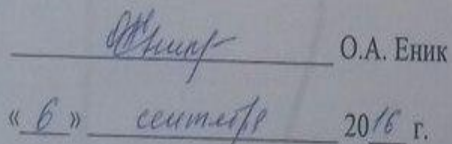 О.А. Еник
« 6 » сентября 2016 г.